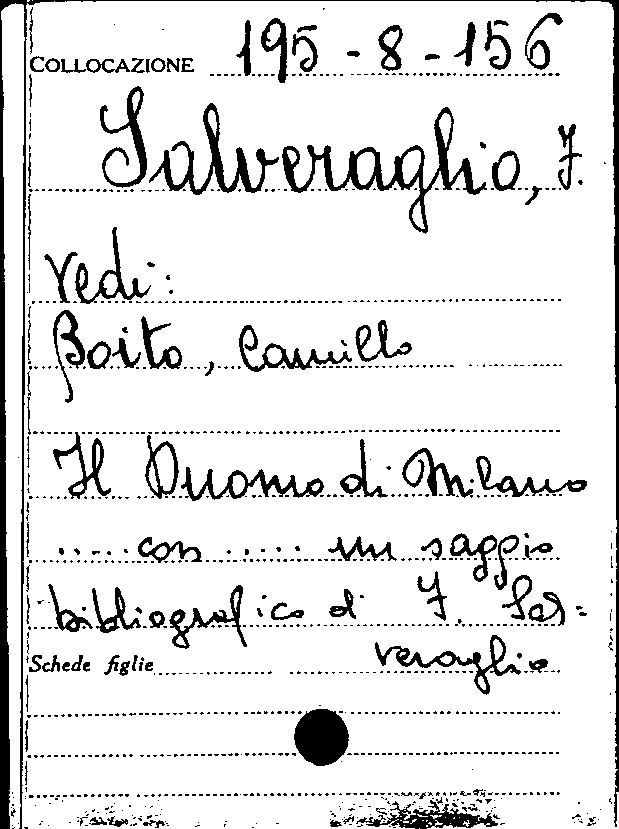 COLLOCAZIONE 195-8-156
Salveraglio, F.
vedi:
Boito, Camillo
Il Duomo di Milano
.....con ..... un saggio
bibliografico di F. Sal=
veraglio
Schede figlie